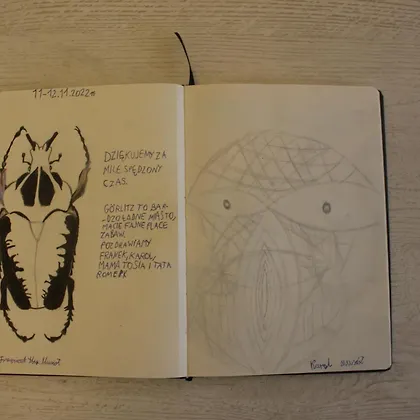 11-12.11.2022r
DZIĘKUJEMY ZA
MILE SPĘDZONY
CZAS.
GÖRLITZ TO BAR-
-DZO ŁADNE MIASTO,
MACIE FAJNE PLACE
ZABAW.
POZDRAWIAMY
FRANEK, KAROL,
MAMA TOSIA I TATA
ROMEK
Karol